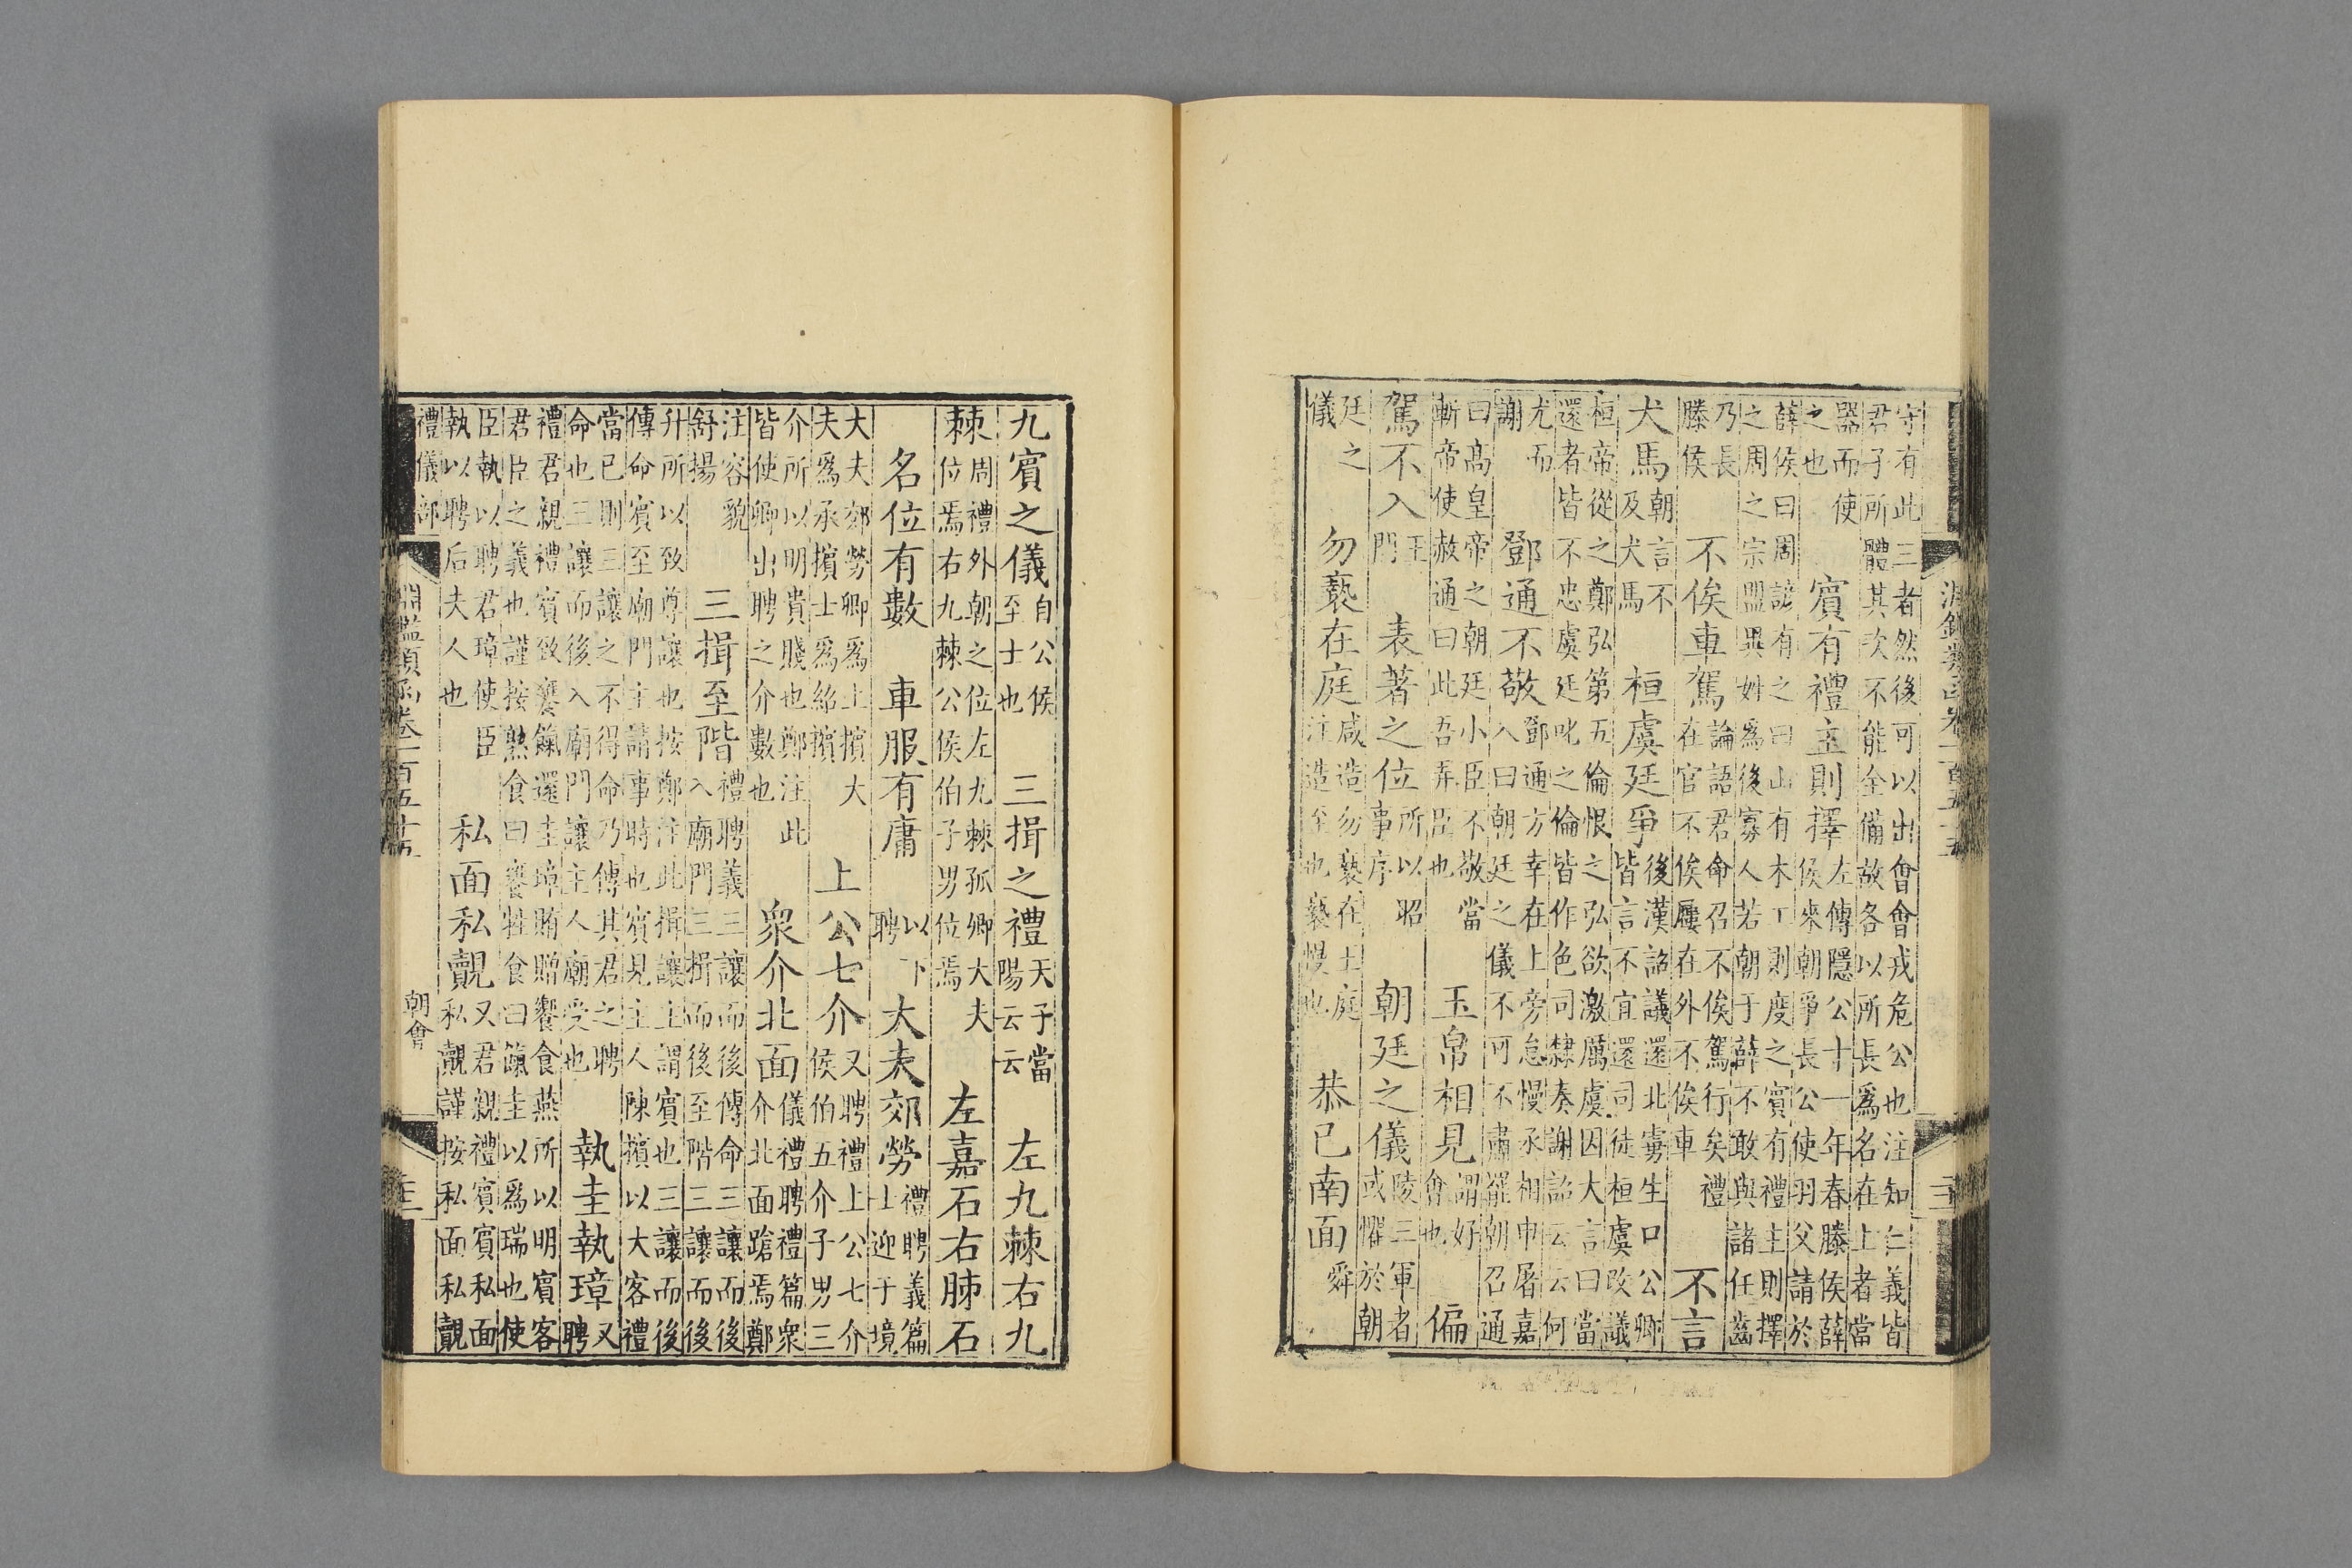 守有此三者然後可以出會會戎危公也注知仁義皆
君子所體其次不能全備故各以所長爲名在上者當
器而使之也 賓有禮主則擇 左傳隱公十一年春滕侯薛侯來朝爭長公使羽父請於
薛侯曰周諺有之曰山有木工則度之賓有禮主則擇
之周之宗盟異姓爲後寡人若朝于薛不敢與諸任齒
乃長滕侯 不俟車駕 論語君命召不俟駕行矣禮在官不俟屨在外不俟車 不言
犬馬 朝言不及犬馬 桓虞廷爭 後漢詔議還北虜生口公卿皆言不宜還司徒桓虞改議
桓帝從之鄭弘第五倫恨之弘欲激厲虞因大言曰當
還者皆不忠虞廷叱之倫皆作色司隸奏謝詔云云何
尤而謝 鄧通不敬 鄧通方幸在上旁怠慢丞相申屠嘉入曰朝廷之儀不可不肅罷朝召通
曰高皇帝之朝廷小臣不敬當斬帝使赦通曰此吾弄臣也 玉帛相見 謂好會也 偏
駕不入 王門 表著之位 所以昭事序 朝廷之儀 陵三軍者或懼於朝
廷之儀 勿褻在庭 咸造勿褻在王庭注造至也褻慢也 恭已南面 舜
九賓之儀 自公侯至士也 三揖之禮 天子當陽云云 左九棘右九
棘 周禮外朝之位左九棘孤卿大夫位焉右九棘公侯伯子男位焉 左嘉石右肺石
名位有數 車服有庸 以下聘 大夫郊勞 禮聘義篇士迎于境
大夫郊勞卿爲上擯大夫爲承擯士爲紹擯 上公七介 又聘禮上公七介侯伯五介子男三
介所以明貴賤也鄭注此皆使卿出聘之介數也 衆介北面 儀禮聘禮篇衆介北面蹌焉鄭
注容貌舒揚 三揖至階 禮聘義三讓而後傳命三讓而後入廟門三揖而後至階三讓而後
升所以致尊讓也按鄭注此揖讓主謂賓也三讓而後
傳命賓至廟門主請事時也賓見主人陳擯以大客禮
當已則三讓之不得命乃傳其君之聘命也三讓而後入廟門讓主人廟受也 執圭執璋 又聘
禮君親禮賓致饔餼還圭璋賄贈饗食燕所以明賓客
君臣之義也謹按熟食曰饔牲食曰餼圭以爲瑞也使
臣執以聘君璋使臣執以聘后夫人也 私面私覿 又君親禮賓賓私面私覿謹按私面私覿
禮儀部 淵鑑類函卷一百五十五 朝會